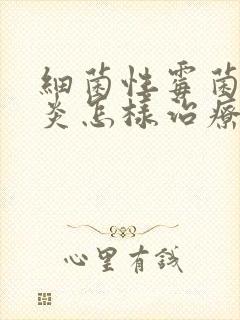 細菌性霉菌
炎怎樣治療
心里有錢